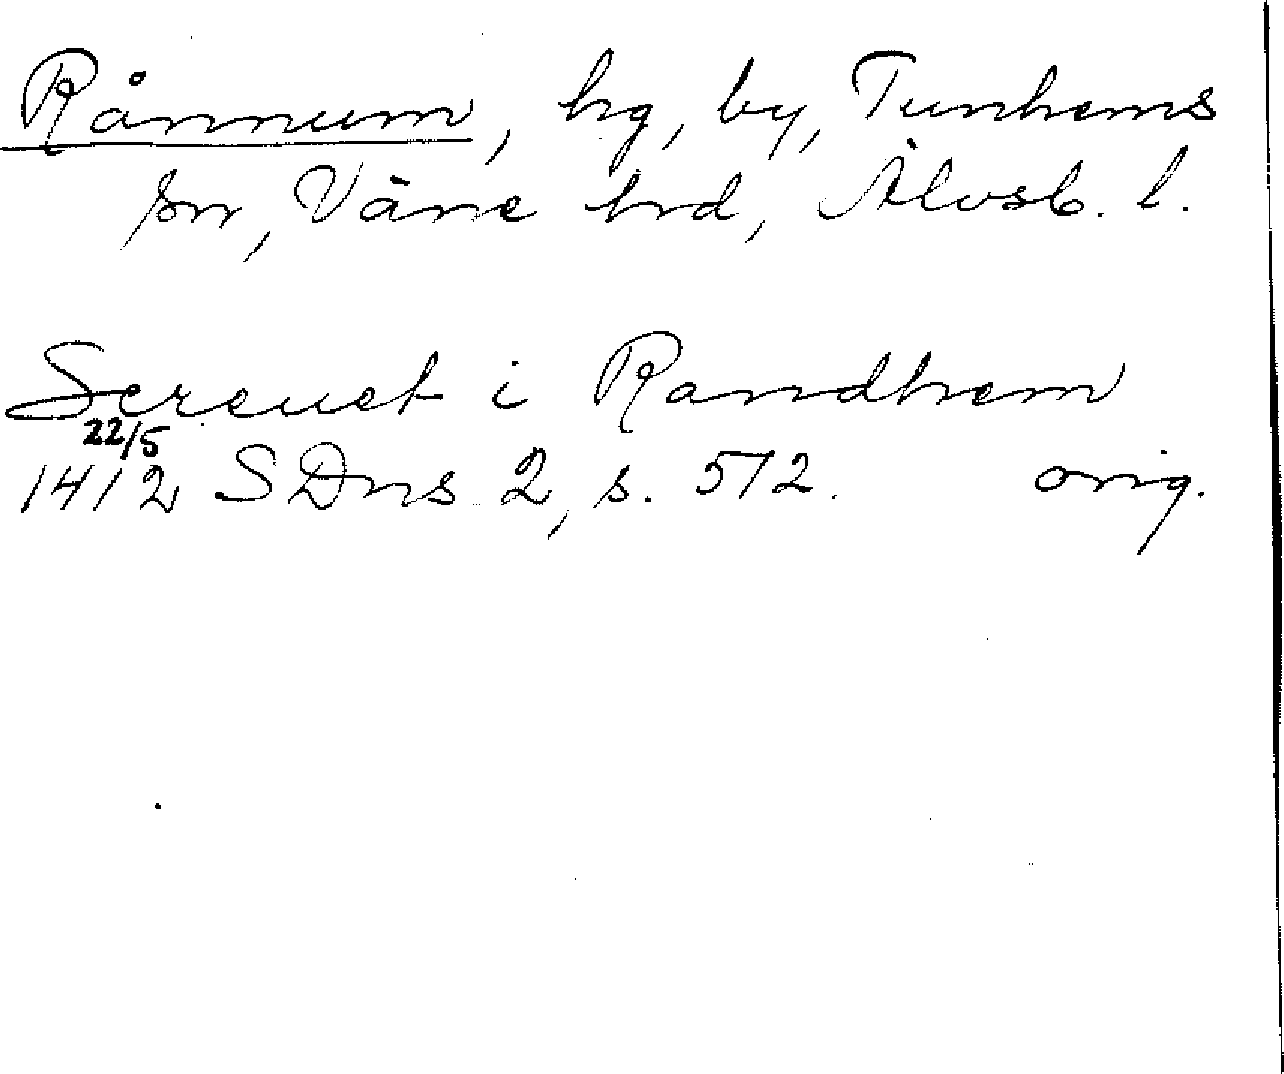 Rånnum, hg, by, Tunhems
sn, Väne hrd, Älvsb. l.
Screuet i Randhem
22/5
1412 SDns 2, s. 572. orig.